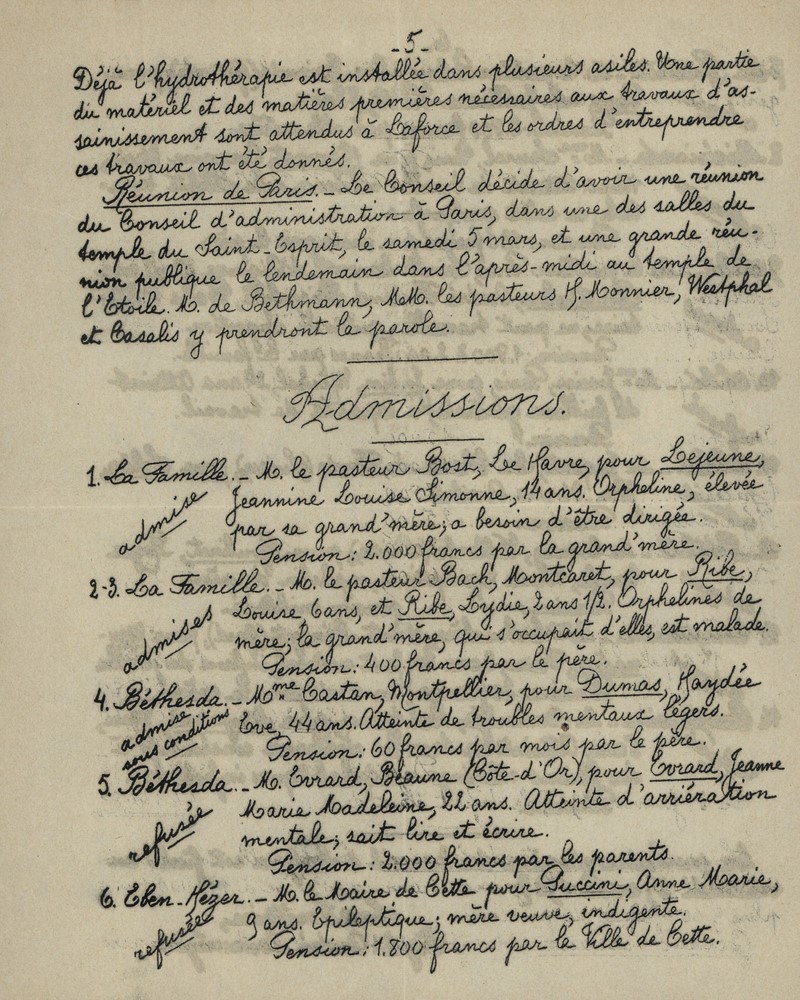 -5-
Déjà l'hydrothérapie est installée dans plusieurs asiles. Une partie
du matériel et des matières premières nécessaires aux travaux d'as-
sainissement sont attendus à Laforce et les ordres d'entreprendre
ces travaux ont été donnés.
Réunion de Paris. - Le Conseil décide d'avoir une réunion
du Conseil d'administration à Paris, dans une des salles du
temple du Saint-Esprit, le samedi 5 mars, et une grande réu-
nion publique le lendemain dans l'après-midi au temple de
l'Etoile. M. de Bethmann, MM. les pasteurs H. Monnier, Westphal
et Casalis y prendront la parole.
Admissions.
1. La Famille. - M. le pasteur Bost, Le Havre, pour Lejeune,
Jeannine Louise Simonne, 14 ans. Orpheline, élevée
admise
par sa grand'mère; a besoin d'être dirigée.
Pension: 2.000 francs par la grand'mère.
2-3. La Famille. - M. le pasteur Bach, Montcaret, pour Ribe,
Louise, 6 ans, et Ribe, Lydie, 2 ans 1/2. Orphelines de
admises
mère; la grand'mère, qui s'occupait d'elles, est malade.
Pension: 400 francs par le père.
4. Béthesda. - Mme Castan, Montpellier, pour Dumas, Haydée
admise
sous conditions
Eve, 44 ans. Atteinte de troubles mentaux légers.
Pension: 60 francs par mois par le père.
5. Béthesda. - M. Evrard, Beaune (Côte-d'Or), pour Evrard, Jeanne
Marie Madeleine, 22 ans. Atteinte d'arriération
refusée
mentale; sait lire et écrire.
Pension: 2.000 francs par les parents.
6. Eben-Hézer. - M. le Maire de Cette pour Puccini, Anne Marie,
9 ans. Epileptique; mère veuve, indigente.
refusée
Pension: 1.800 francs par la Ville de Cette.